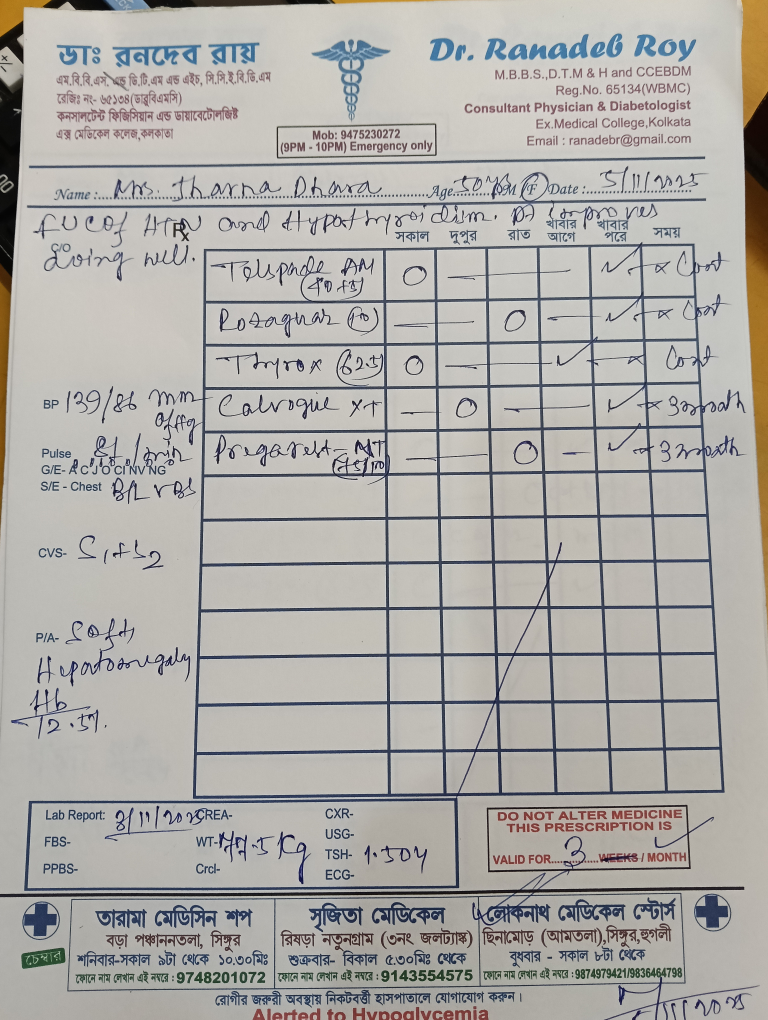 ডাঃ রনদেব রায়
এম.বি.বি.এস. এন্ড ডি.টি.এম এন্ড এইচ, সি.সি.ই.বি.ডি.এম
রেজিঃ নং- ৬৫১৩৪(ডাব্লুবিএমসি)
কনসালটেন্ট ফিজিসিয়ান এন্ড ডায়াবেটোলজিষ্ট
এক্স মেডিকেল কলেজ,কলকাতা
Mob: 9475230272
(9PM - 10PM) Emergency only
Dr. Ranadeb Roy
M.B.B.S.,D.T.M & H and CCEBDM
Reg.No. 65134(WBMC)
Consultant Physician & Diabetologist
Ex.Medical College,Kolkata
Email : ranadebr@gmail.com
Name : Mrs. Jharna Dhara Age 50 yrs M F Date : 5/11/2025
FUC of HTN and Hypothyroidism. Pt improves
Doing well.
Rx সকাল দুপুর রাত খাবার আগে খাবার পরে সময়
Telspade AM (40+5) O — — ✓ x Cont
Rozaguar (10) — — O — ✓ x Cont
Thyrox (62.5) O — — ✓ — x Cont
Calvogue XT — O — — ✓ x 3 month
Pregarest-NT (75/10) — — O — ✓ x 3 month
BP 139/86 mm of Hg
Pulse 81/min
G/E- A C J O CI NV NG
S/E - Chest B/L VBS
CVS- S1+S2
P/A- Soft
Hepatomegaly
Hb
12.5%.
Lab Report: 3/11/2025 CREA- CXR-
FBS- WT- 77.5 Kg USG-
PPBS- Crcl- TSH- 1.504
ECG-
DO NOT ALTER MEDICINE
THIS PRESCRIPTION IS
VALID FOR 3 WEEKS / MONTH
চেম্বার
তারামা মেডিসিন শপ
বড়া পঞ্চাননতলা, সিঙ্গুর
শনিবার-সকাল ৯টা থেকে ১০.৩০মিঃ
ফোনে নাম লেখান এই নম্বরে : 9748201072
সৃজিতা মেডিকেল
রিষড়া নতুনগ্রাম (৩নং জলট্যাঙ্ক)
শুক্রবার- বিকাল ৫.৩০মিঃ থেকে
ফোনে নাম লেখান এই নম্বরে : 9143554575
লোকনাথ মেডিকেল স্টোর্স
ছিনামোড় (আমতলা),সিঙ্গুর,হুগলী
বুধবার - সকাল ৮টা থেকে
ফোনে নাম লেখান এই নম্বরে : 9874979421/9836464798
রোগীর জরুরী অবস্থায় নিকটবর্ত্তী হাসপাতালে যোগাযোগ করুন।
Alerted to Hypoglycemia
/11/2025